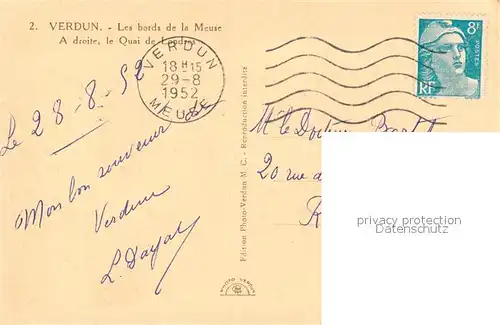 2. VERDUN. - Les bords de la Meuse
A droite, le Quai de Londres
VERDUN
18H15
29-8
1952
MEUSE
8F
RF
POSTES
Le 28-8-52
Mon bon souvenir de
Verdun
Edition Photo-Verdun M. C. - Reproduction interdite
PHOTO VERDUN
M. le Docteur
20 rue
privacy protection
Datenschutz